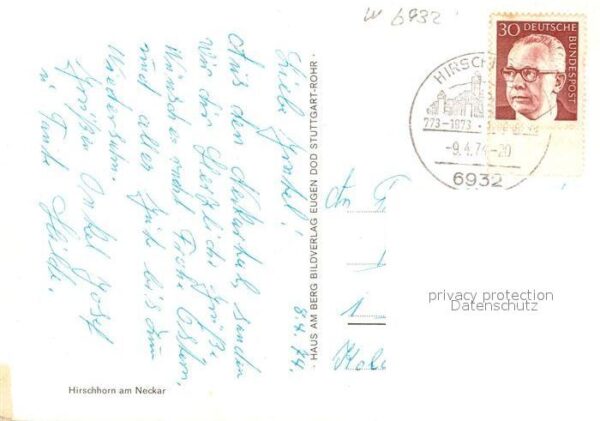 W 6932
30 DEUTSCHE
BUNDESPOST
HIRSCHH
773-1973
-9.4.74-20
6932
8.4.74.
Liebe
Aus den Neckartal, senden
wir dir Herzliche Grüße
Wünschen recht Frohe Ostern,
und alles Gute bis zum
Wiedersehn.
Grüßen Onkel Josef
u. Tante Hilde.
· HAUS AM BERG BILDVERLAG EUGEN DOD STUTTGART-ROHR ·
An
1
privacy protection
Datenschutz
Hirschhorn am Neckar